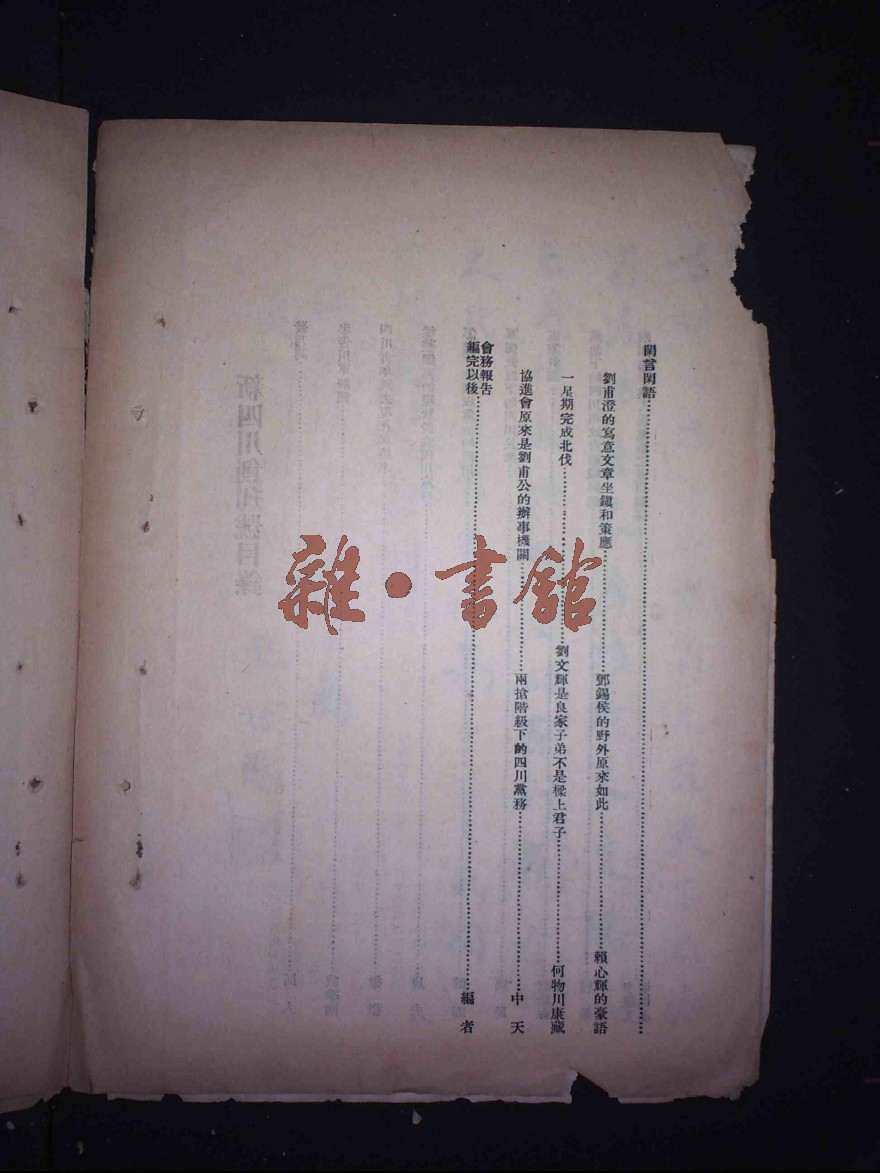 閑言閑語
劉甫澄的寫意文章坐鎭和策應 鄧錫侯的野外原來如此 賴心輝的豪語
一星期完成北伐 劉文輝是良家子弟不是樑上君子 何物川康藏
協進會原來是劉甫公的辦事機關 兩搶階級下的四川黨務 中天
會務報告
編完以後 編者
新四川創刊號目錄
雜·書館